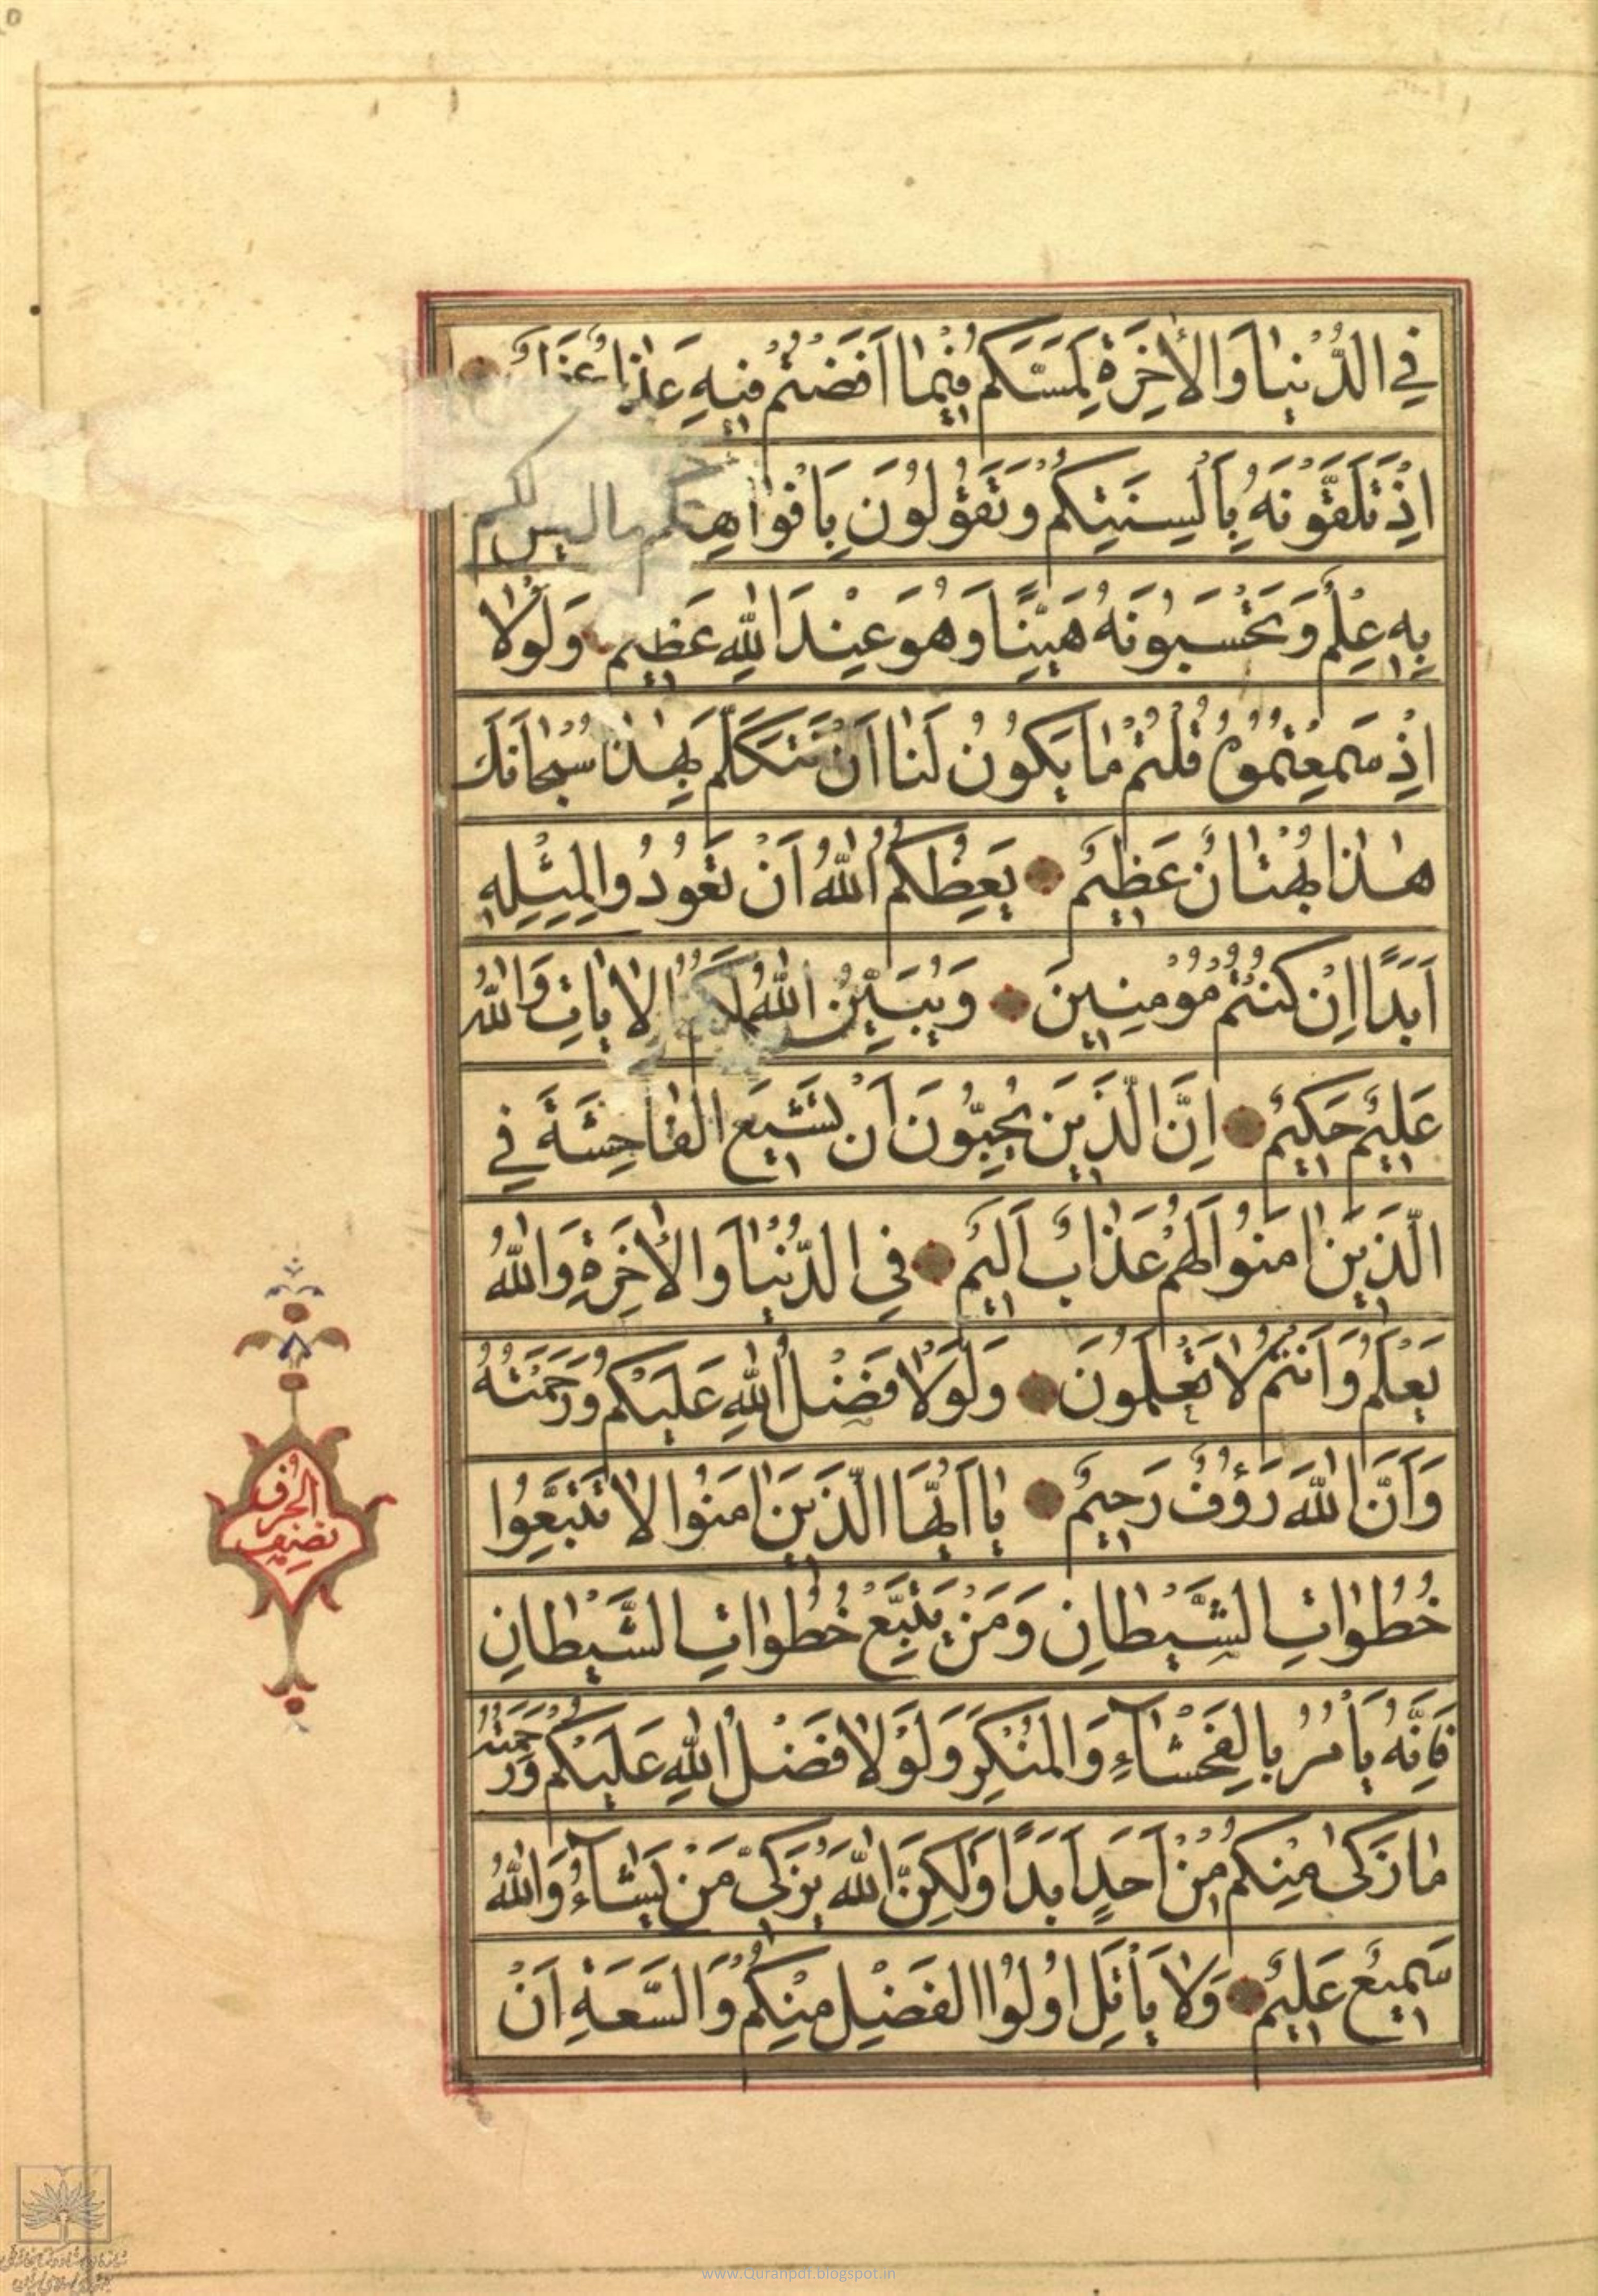 فِي الدُّنْيَا وَالْأٰخِرَةِ لَمَسَّكُمْ فِيمَا أَفَضْتُمْ فِيهِ
اِذْ تَلَقَّوْنَهُ بِأَلْسِنَتِكُمْ وَتَقُولُونَ بِأَفْوَاهِكُمْ مَا لَيْسَ لَكُمْ
بِهِ عِلْمٌ وَتَحْسَبُونَهُ هَيِّنًا وَهُوَ عِنْدَ اللّٰهِ عَظِيمٌ وَلَوْلَا
اِذْ سَمِعْتُمُوهُ قُلْتُمْ مَا يَكُونُ لَنَا أَنْ نَتَكَلَّمَ بِهٰذَا سُبْحَانَكَ
هٰذَا بُهْتَانٌ عَظِيمٌ يَعِظُكُمُ اللّٰهُ أَنْ تَعُودُوا لِمِثْلِهِ
أَبَدًا اِنْ كُنْتُمْ مُؤْمِنِينَ وَيُبَيِّنُ اللّٰهُ لَكُمُ الْاٰيَاتِ وَاللّٰهُ
عَلِيمٌ حَكِيمٌ اِنَّ الَّذِينَ يُحِبُّونَ أَنْ تَشِيعَ الْفَاحِشَةُ فِي
الَّذِينَ اٰمَنُوا لَهُمْ عَذَابٌ أَلِيمٌ فِي الدُّنْيَا وَالْأٰخِرَةِ وَاللّٰهُ
يَعْلَمُ وَأَنْتُمْ لَا تَعْلَمُونَ وَلَوْلَا فَضْلُ اللّٰهِ عَلَيْكُمْ وَرَحْمَتُهُ
وَأَنَّ اللّٰهَ رَؤُفٌ رَحِيمٌ يَا أَيُّهَا الَّذِينَ اٰمَنُوا لَا تَتَّبِعُوا
خُطُوَاتِ الشَّيْطَانِ وَمَنْ يَتَّبِعْ خُطُوَاتِ الشَّيْطَانِ
فَاِنَّهُ يَأْمُرُ بِالْفَحْشَآءِ وَالْمُنْكَرِ وَلَوْلَا فَضْلُ اللّٰهِ عَلَيْكُمْ وَرَحْمَتُهُ
مَا زَكٰى مِنْكُمْ مِنْ أَحَدٍ أَبَدًا وَلٰكِنَّ اللّٰهَ يُزَكِّي مَنْ يَشَآءُ وَاللّٰهُ
سَمِيعٌ عَلِيمٌ وَلَا يَأْتَلِ اُولُوا الْفَضْلِ مِنْكُمْ وَالسَّعَةِ أَنْ
نصف
الحزب
www.Quranpdf.blogspot.in